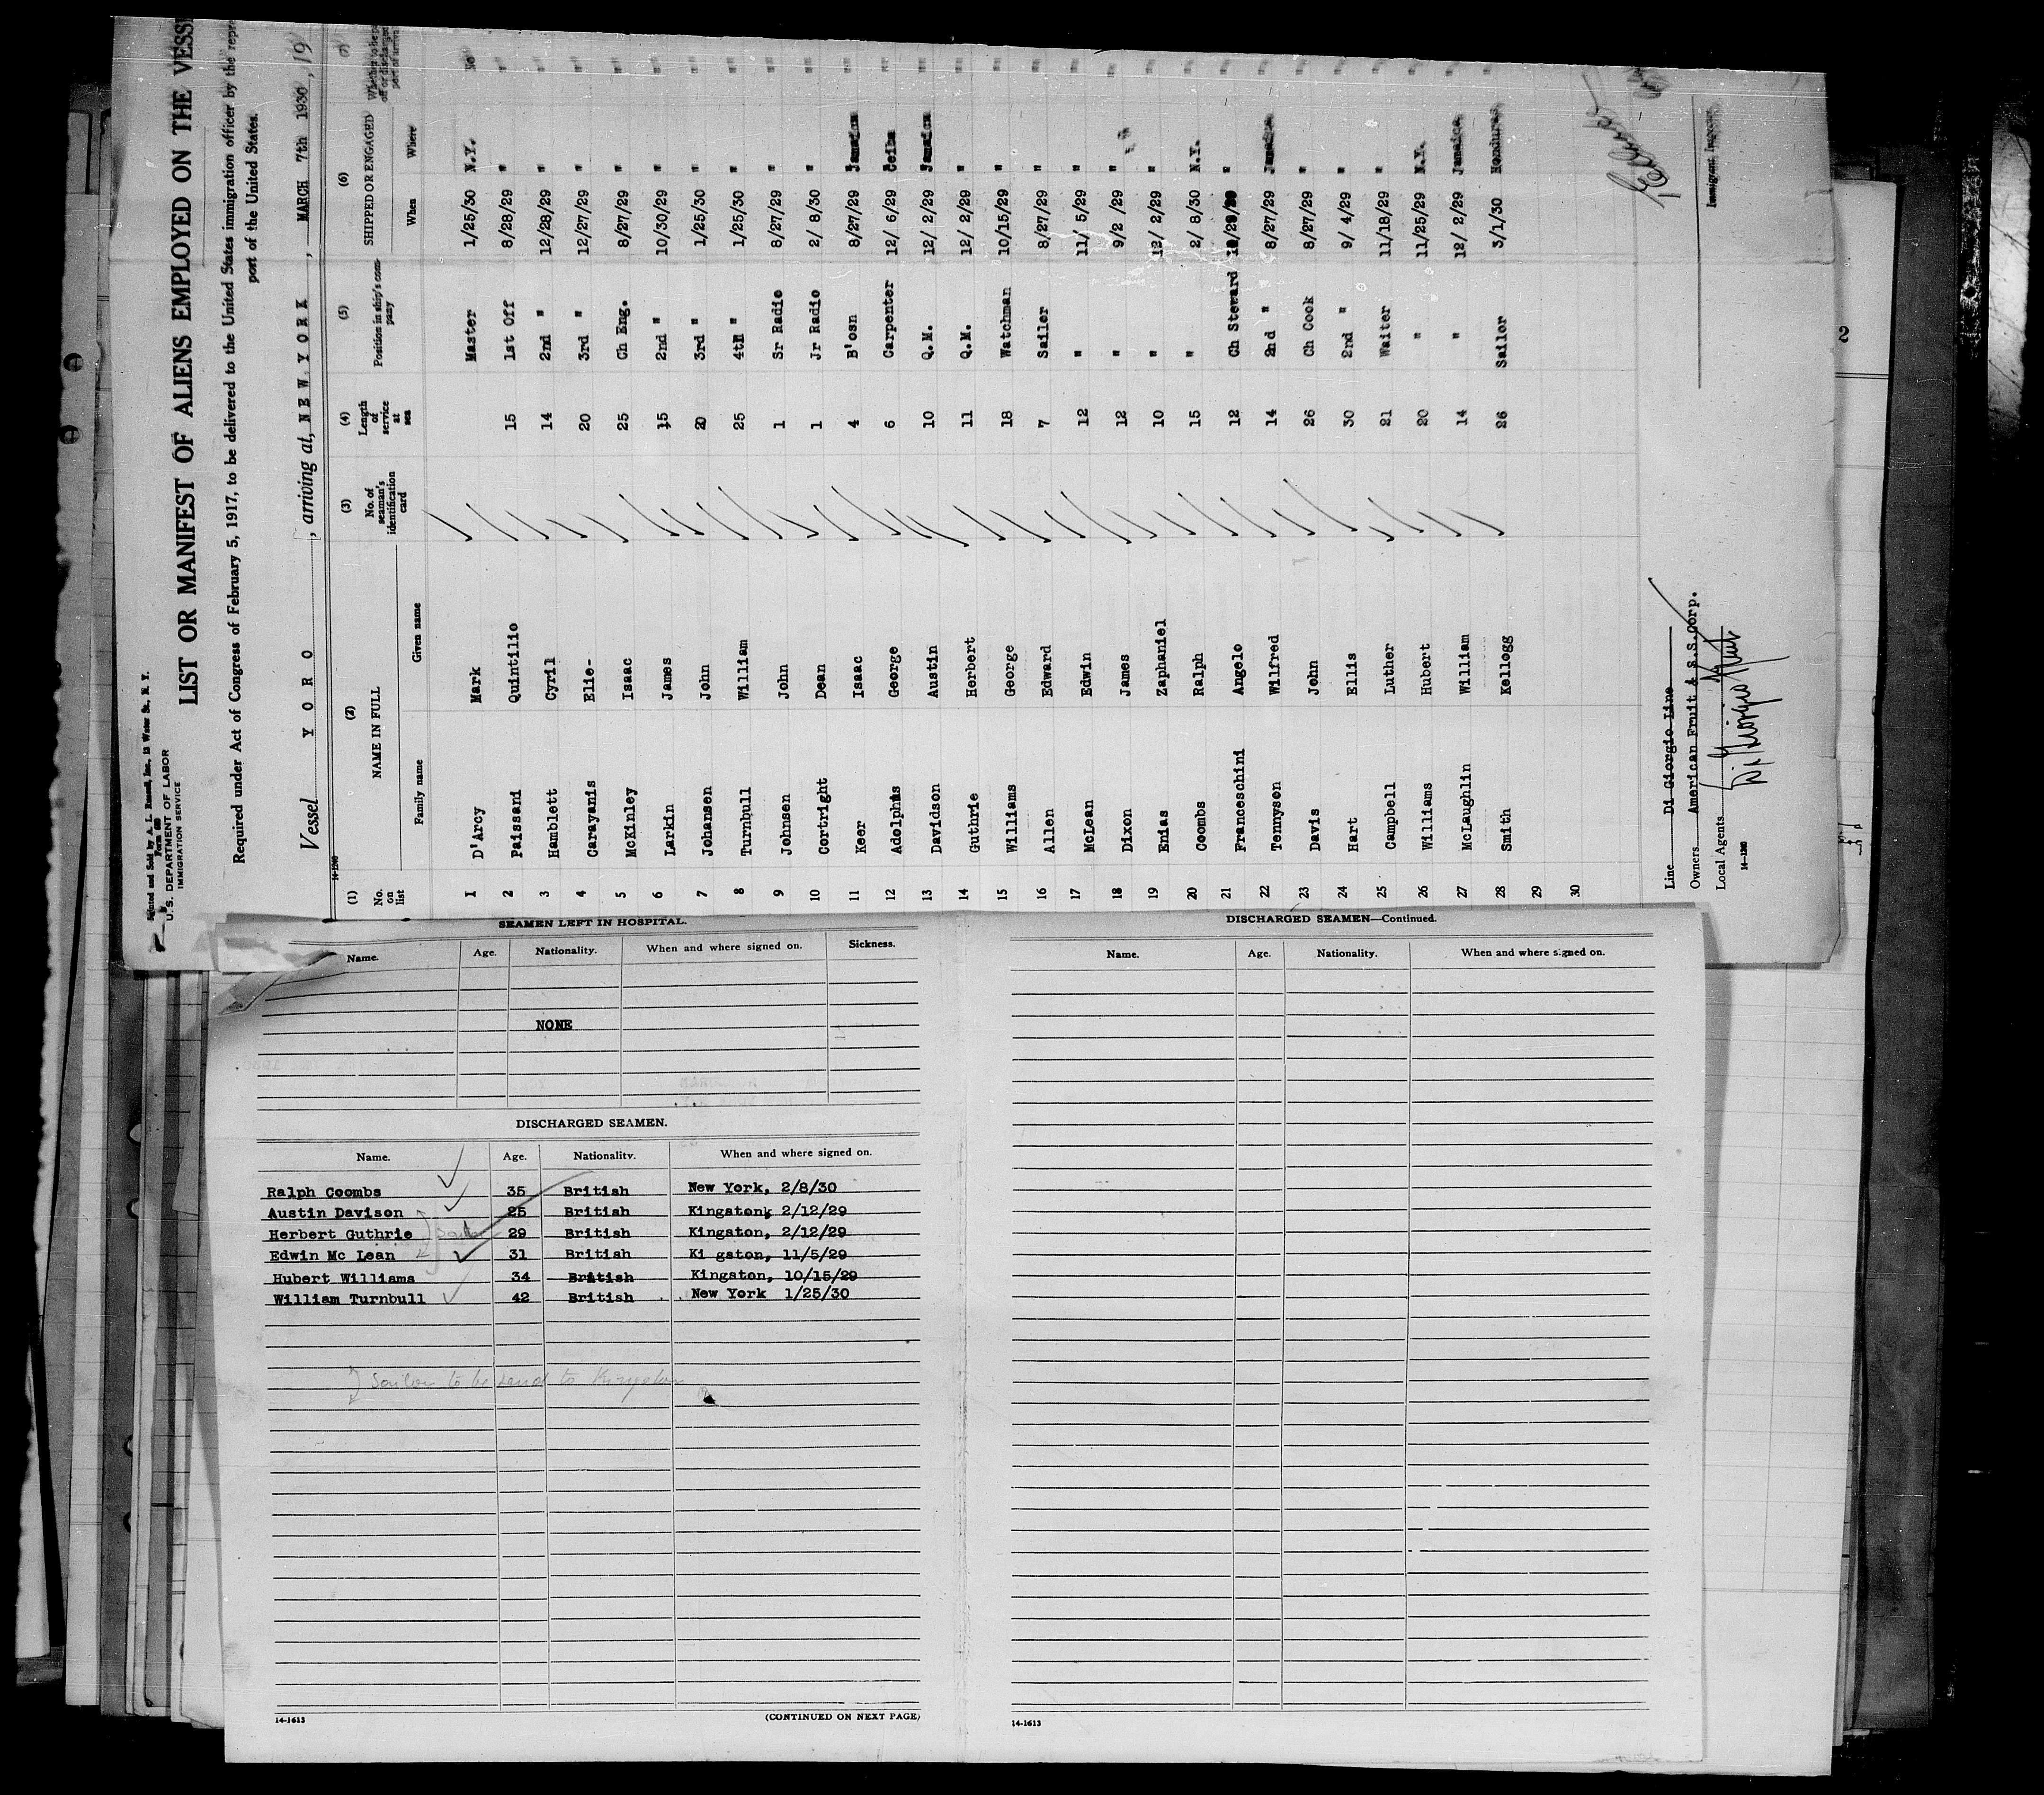 Printed and Sold by A. L. Russell, Inc., 13 Water St., N. Y.
Form 689
U. S. DEPARTMENT OF LABOR
IMMIGRATION SERVICE
LIST OR MANIFEST OF ALIENS EMPLOYED ON THE VESS
Required under Act of Congress of February 5, 1917, to be delivered to the United States immigration officer by the repr
port of the United States.
Vessel Y O R O , arriving at, N E W Y O R K , MARCH 7th 1930 , 19
14-1240
(1) (2) (3) (4) (5) (6) (7)
No. on list NAME IN FULL No. of seaman's identification card Length of service at sea Position in ship's company SHIPPED OR ENGAGED
Family name Given name When Where
1 D'Arcy Mark Master 1/25/30 N.Y. No
2 Paissani Quintilio 15 1st Off 8/28/29 " "
3 Hamblett Cyril 14 2nd " 12/28/29 " "
4 Carayanis Elie- 20 3rd " 12/27/29 " "
5 McKinley Isaac 25 Ch Eng. 8/27/29 " "
6 Larkin James 15 2nd " 10/30/29 " "
7 Johansen John 20 3rd " 1/25/30 " "
8 Turnbull William 25 4th " 1/25/30 " "
9 Johnsen John 1 Sr Radio 8/27/29 " "
10 Cortright Dean 1 Jr Radio 2/ 8/30 " "
11 Keer Isaac 4 B'osn 8/27/29 Jamaica "
12 Adolphus George 6 Carpenter 12/ 6/29 Ceiba "
13 Davidson Austin 10 Q.M. 12/ 2/29 Jamaica "
14 Guthrie Herbert 11 Q.M. 12/ 2/29 " "
15 Williams George 18 Watchman 10/15/29 " "
16 Allen Edward 7 Sailer 8/27/29 " "
17 McLean Edwin 12 " 11/ 5/29 " "
18 Dixon James 12 " 9/2 /29 " "
19 Enias Zaphaniel 10 " 12/ 2/29 " "
20 Coombs Ralph 15 " 2/ 8/30 N.Y. "
21 Franceschini Angelo 12 Ch Steward " "
22 Tennyson Wilfred 14 2nd " 8/27/29 Jamaica "
23 Davis John 26 Ch Cook 8/27/29 " "
24 Hart Ellis 30 2nd " 9/ 4/29 " "
25 Campbell Luther 21 Waiter 11/18/29 " "
26 Williams Hubert 20 " 11/25/29 N.Y. "
27 McLaughlin William 14 " 12/ 2/29 Jamaica "
28 Smith Kellogg 26 Sailor 3/1/30 Honduras "
29
30
Line Di Giorgio Line
Owners American Fruit & S.S.Corp.
Local Agents Di Giorgio Fruit
14-1240
Immigrant Inspector
2
SEAMEN LEFT IN HOSPITAL.
Name. Age. Nationality. When and where signed on. Sickness.
NONE
DISCHARGED SEAMEN.
Name. Age. Nationality. When and where signed on.
Ralph Coombs 35 British New York, 2/8/30
Austin Davison 25 British Kingston, 2/12/29
Herbert Guthrie 29 British Kingston, 2/12/29
Edwin Mc Lean 31 British Ki gaton, 11/5/29
Hubert Williams 34 British Kingston, 10/15/29
William Turnbull 42 British New York 1/25/30
Sailor to be send to Kingston
14-1613
(CONTINUED ON NEXT PAGE)
DISCHARGED SEAMEN—Continued.
Name. Age. Nationality. When and where signed on.
14-1613